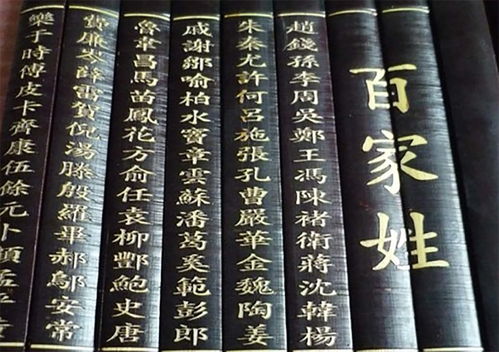 百家姓
趙錢孫李周吳鄭王馮陳褚衛蔣沈韓楊
朱秦尤許何呂施張孔曹嚴華金魏陶姜
戚謝鄒喻柏水竇章雲蘇潘葛奚範彭郎
魯韋昌馬苗鳳花方俞任袁柳酆鮑史唐
費廉岑薛雷賀倪湯滕殷羅畢郝鄔安常
樂于時傅皮卡齊康伍餘元卜顧孟平